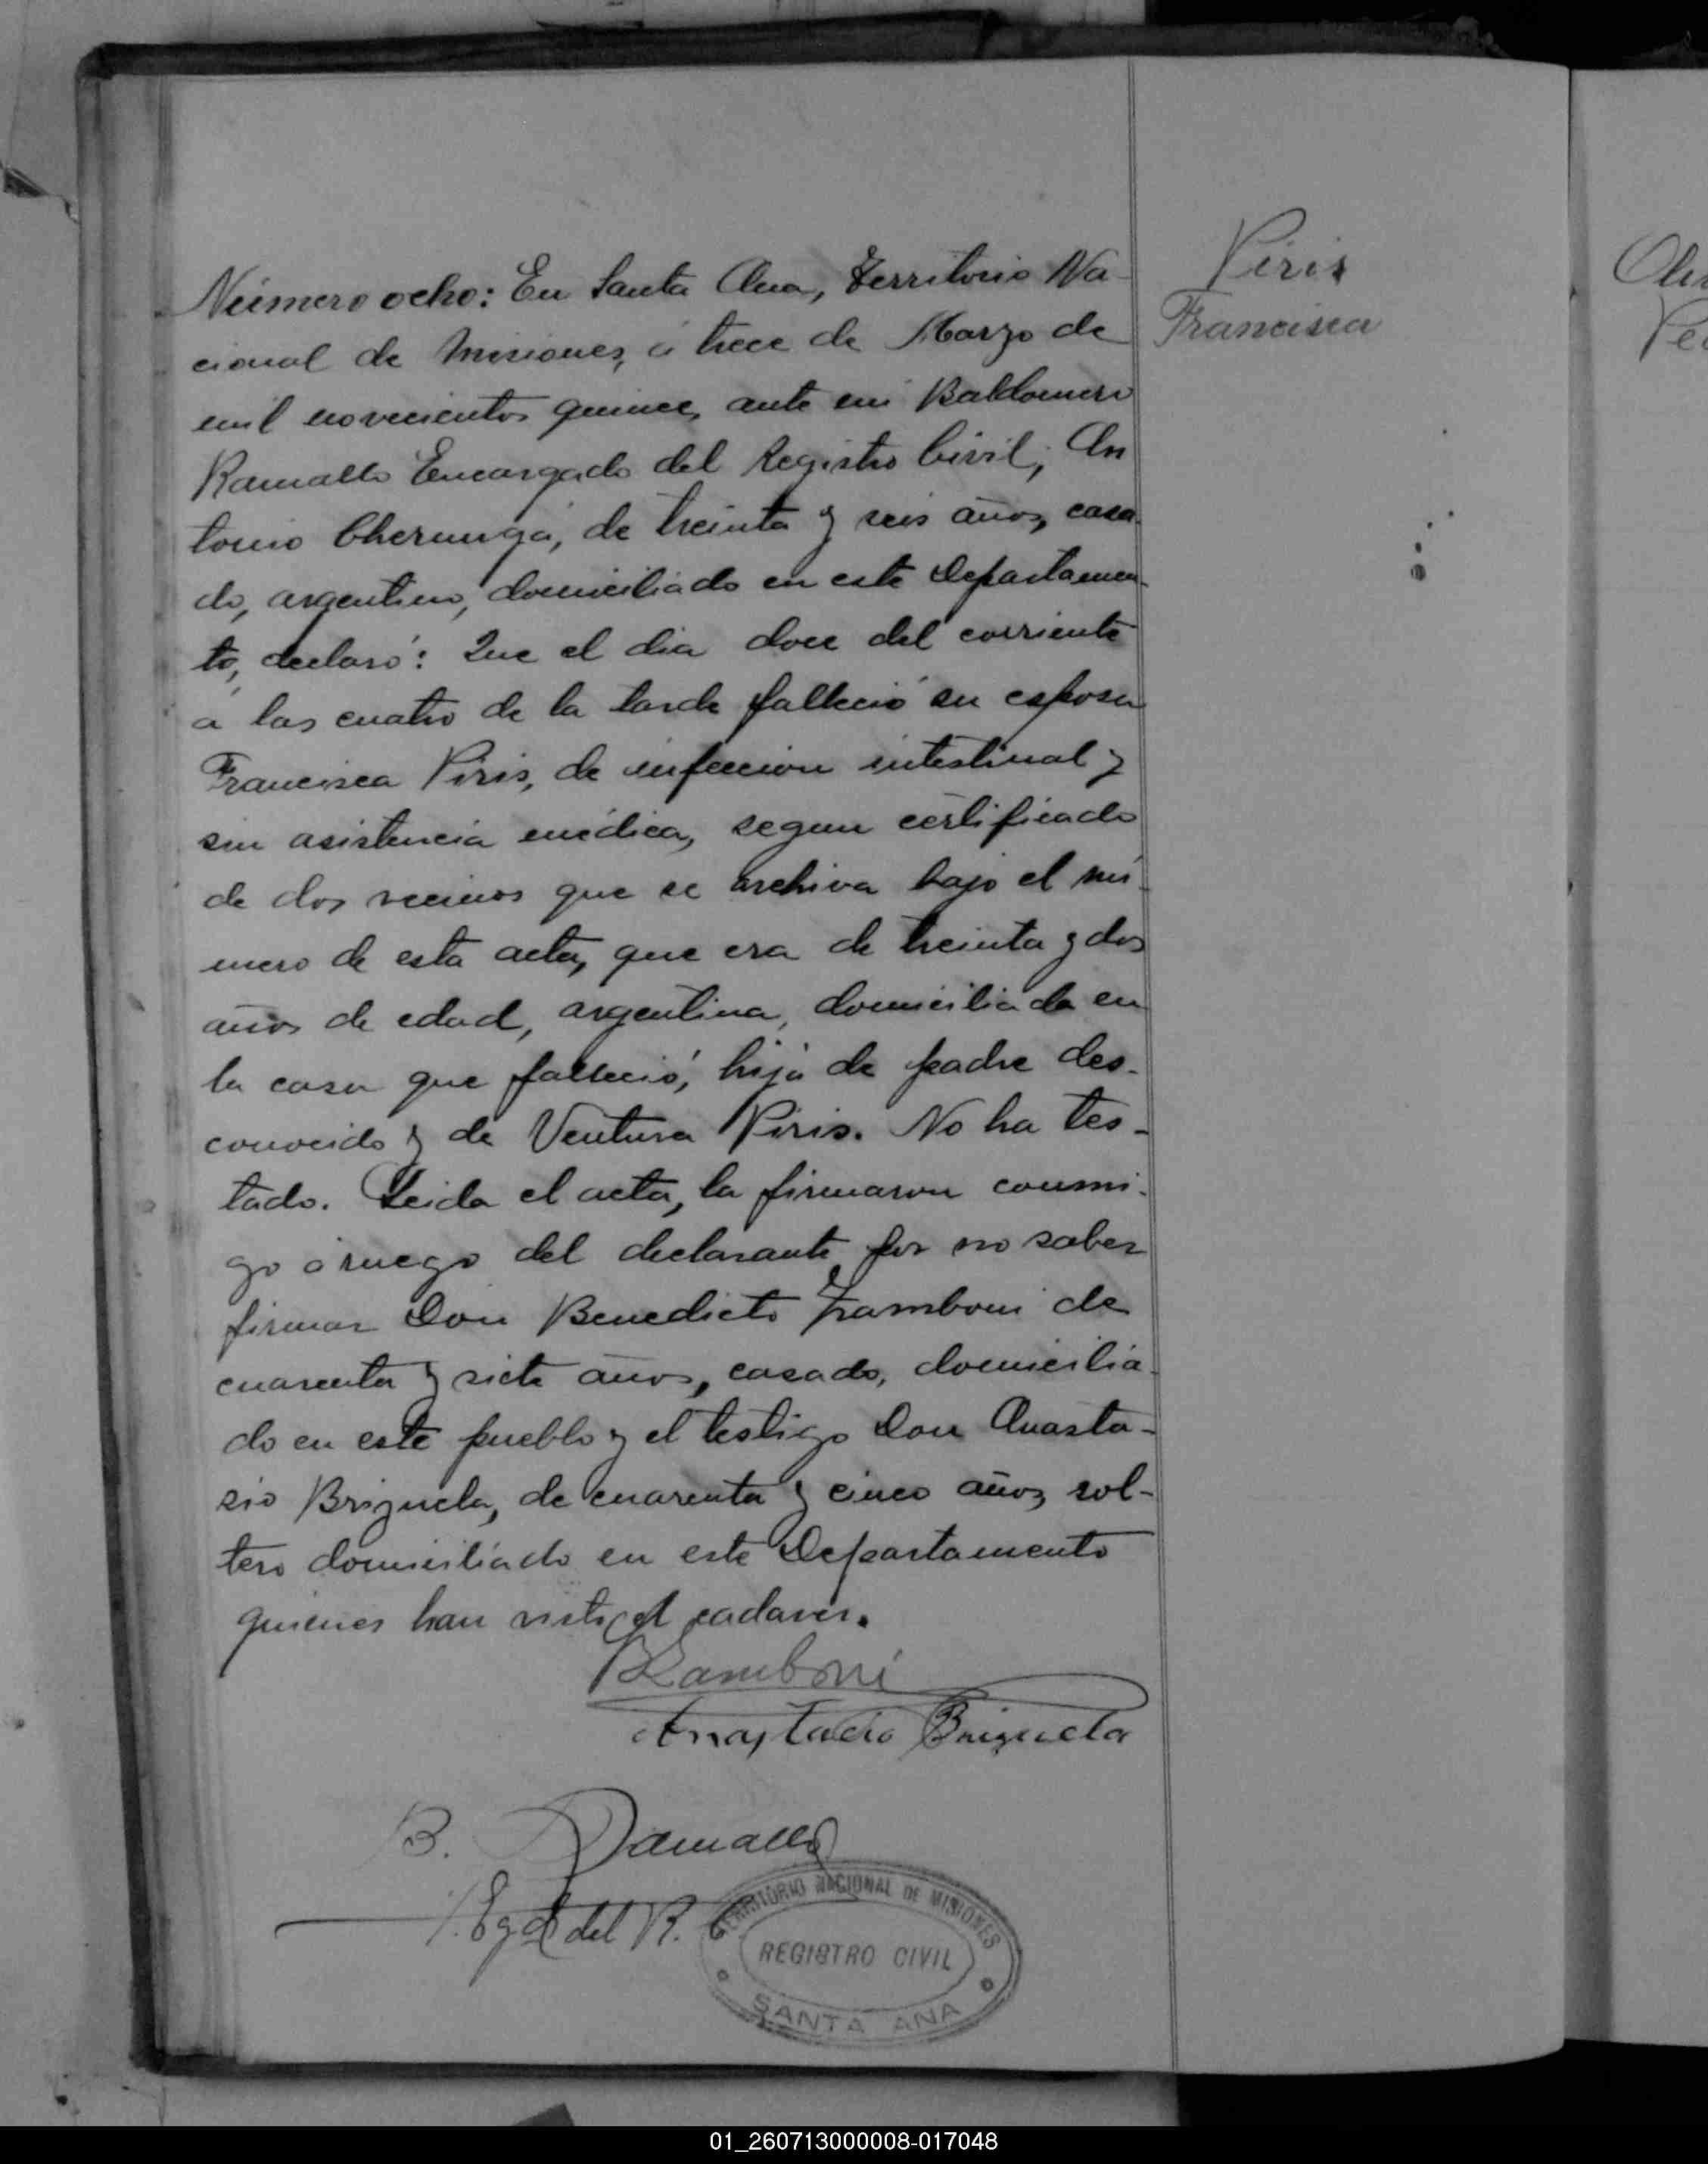 Número ocho: En Santa Ana, Territorio Na-
cional de Misiones, á trece de Marzo de
mil novecientos quince, ante mi Baldomero
Ramallo Encargado del Registro Civil; An
tonio Cherungá, de treinta y seis años, casa-
do, argentino, domiciliado en este Departamen-
to, declaró: Que el dia doce del corriente
á las cuatro de la tarde falleció su esposa
Francisca Piris, de infeccion intestinal y
sin asistencia médica, segun certificado
de dos vecinos que se archiva bajo el nú-
mero de esta acta, que era de treinta y dos
años de edad, argentina, domiciliada en
la casa que falleció, hija de padre des-
conocido y de Ventura Piris. No ha tes-
tado. Leida el acta, la firmaron conmi-
go á ruego del declarante por no saber
firmar Don Benedicto Zamboni de
cuarenta y siete años, casado, domicilia-
do en este pueblo y el testigo Don Anasta-
sio Brizuela, de cuarenta y cinco años, sol-
tero domiciliado en este Departamento
quienes han visto el cadaver.
BZamboni
Anastacio Brizuela
B. Ramallo
Egdo del R. C
TERRITORIO NACIONAL DE MISIONES
REGISTRO CIVIL
SANTA ANA
Piris
Francisca
01_260713000008-017048